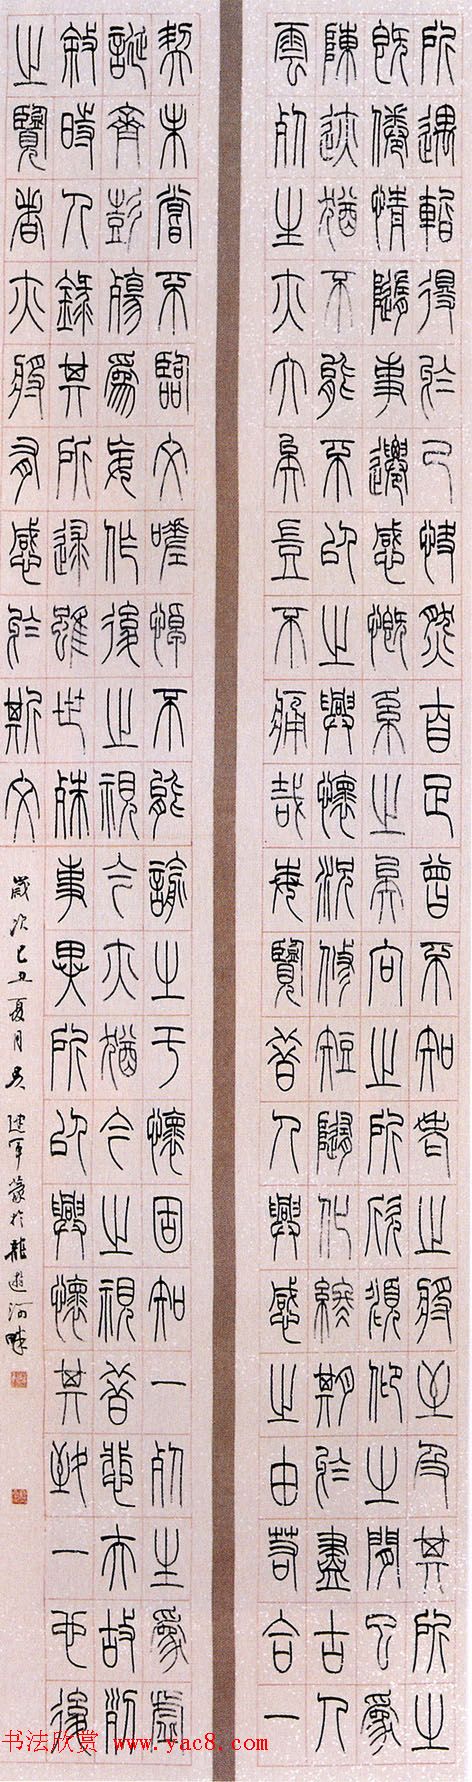 所遇暫得於己快然自足曾不知老之將至及其所之
既倦情隨事遷感慨系之矣向之所欣頫仰之間已為
陳迹猶不能不以之興懷況修短隨化終期於盡古人
雲死生亦大矣豈不痛哉每覽昔人興感之由若合一
契未嘗不臨文嗟悼不能諭之于懷固知一死生為虛
誕齊彭殤為妄作後之視今亦猶今之視昔悲夫故列
敘時人錄其所述雖世殊事異所以興懷其致一也後
之覽者亦將有感於斯文
歲次己丑夏月吳建軍篆於龍遊河畔
书法欣赏 www.yac8.com